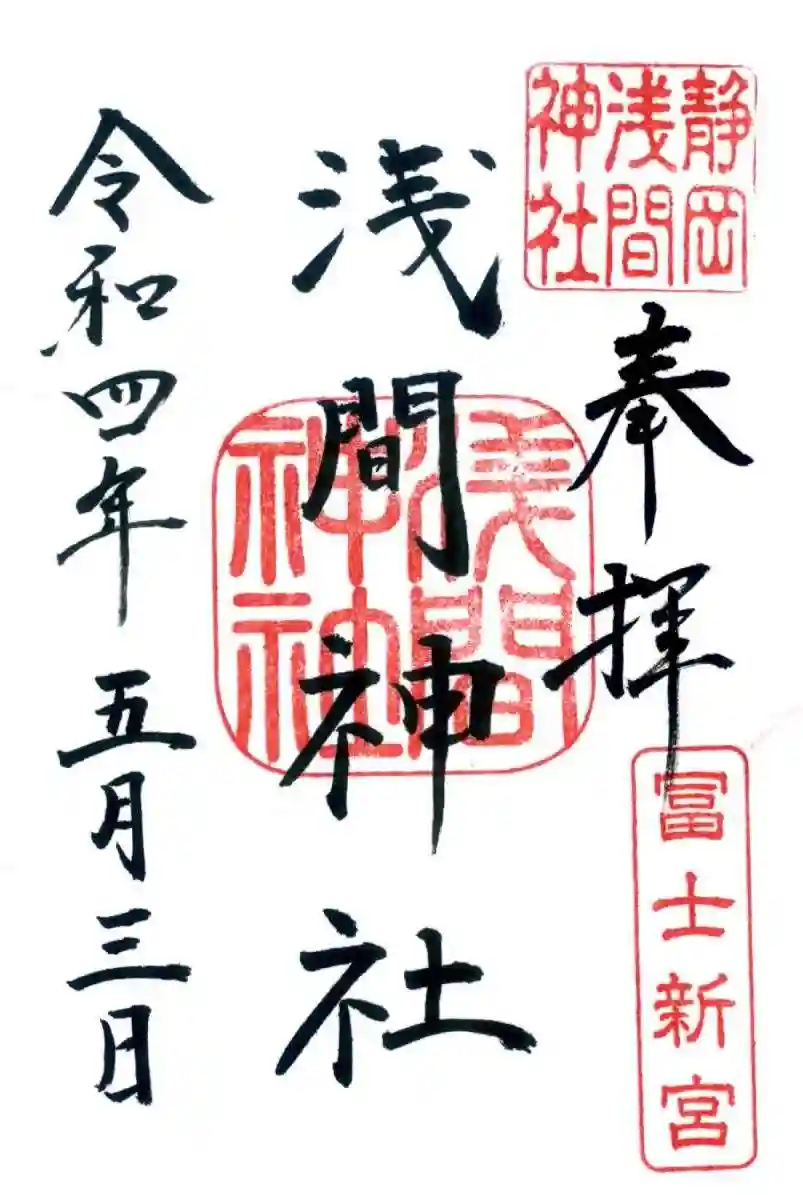 静岡
浅間
神社
奉拝
冨士新宮
浅間神社
浅間
神社
令和四年五月三日